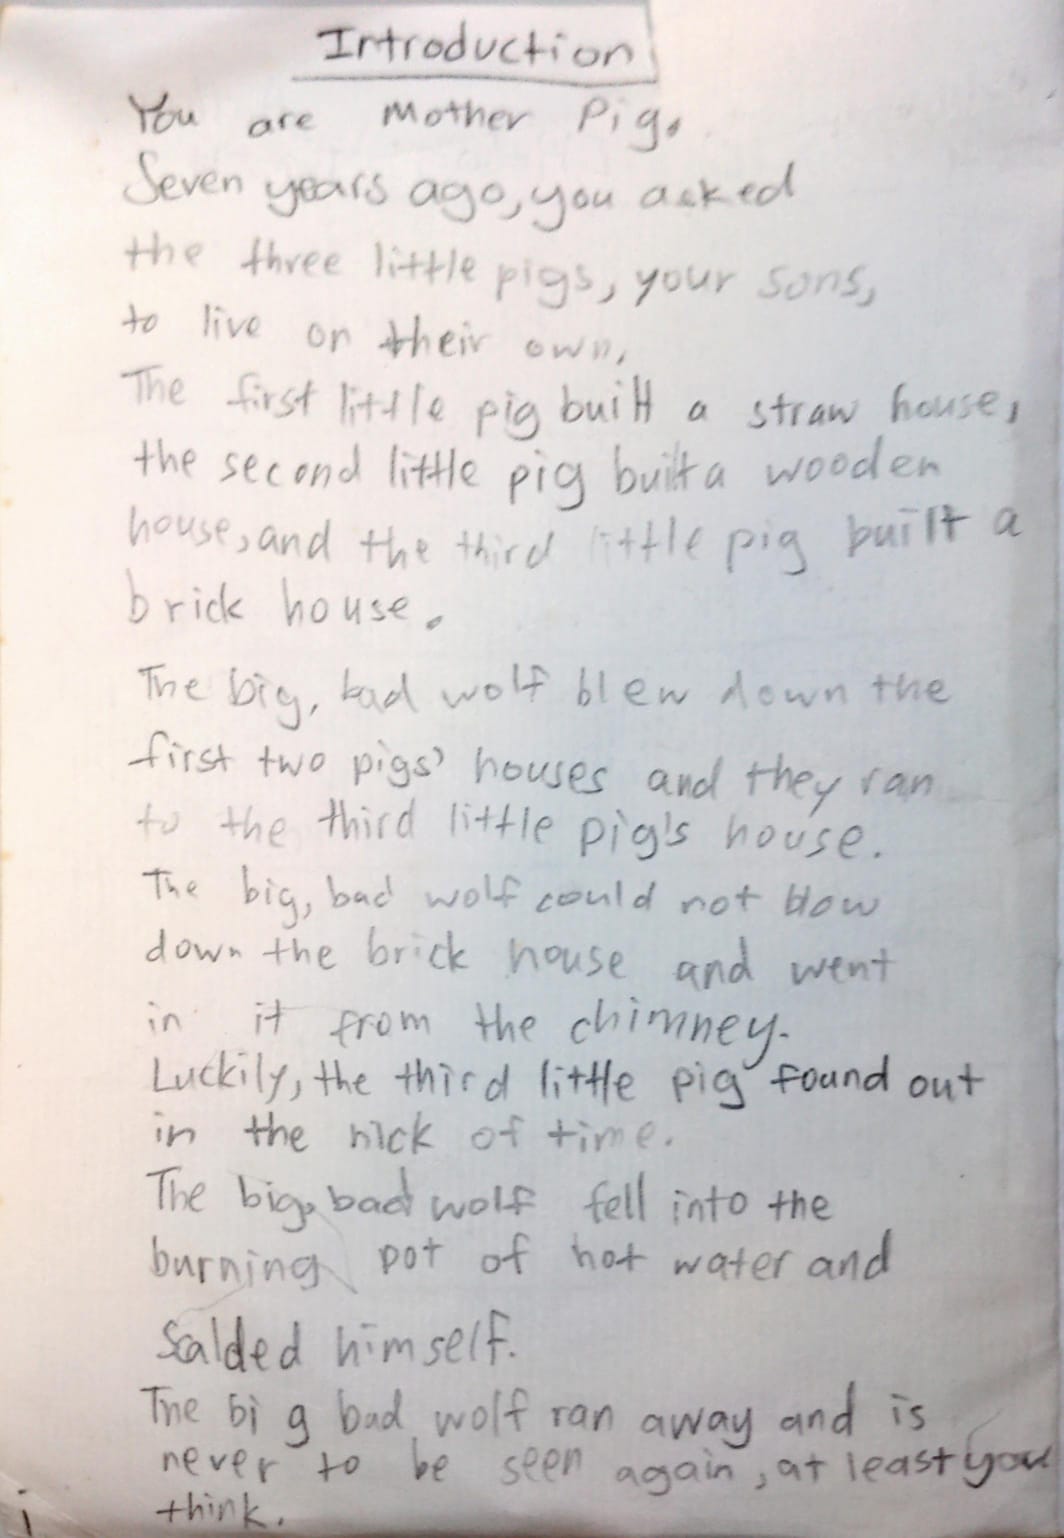 Introduction
You are Mother Pig.
Seven years ago, you asked
the three little pigs, your sons,
to live on their own.
The first little pig built a straw house,
the second little pig built a wooden
house, and the third little pig built a
brick house.
The big, bad wolf blew down the
first two pigs' houses and they ran
to the third little pig's house.
The big, bad wolf could not blow
down the brick house and went
in it from the chimney.
Luckily, the third little pig found out
in the nick of time.
The big, bad wolf fell into the
burning pot of hot water and
Scalded himself.
The big bad wolf ran away and is
never to be seen again, at least you
think.
i